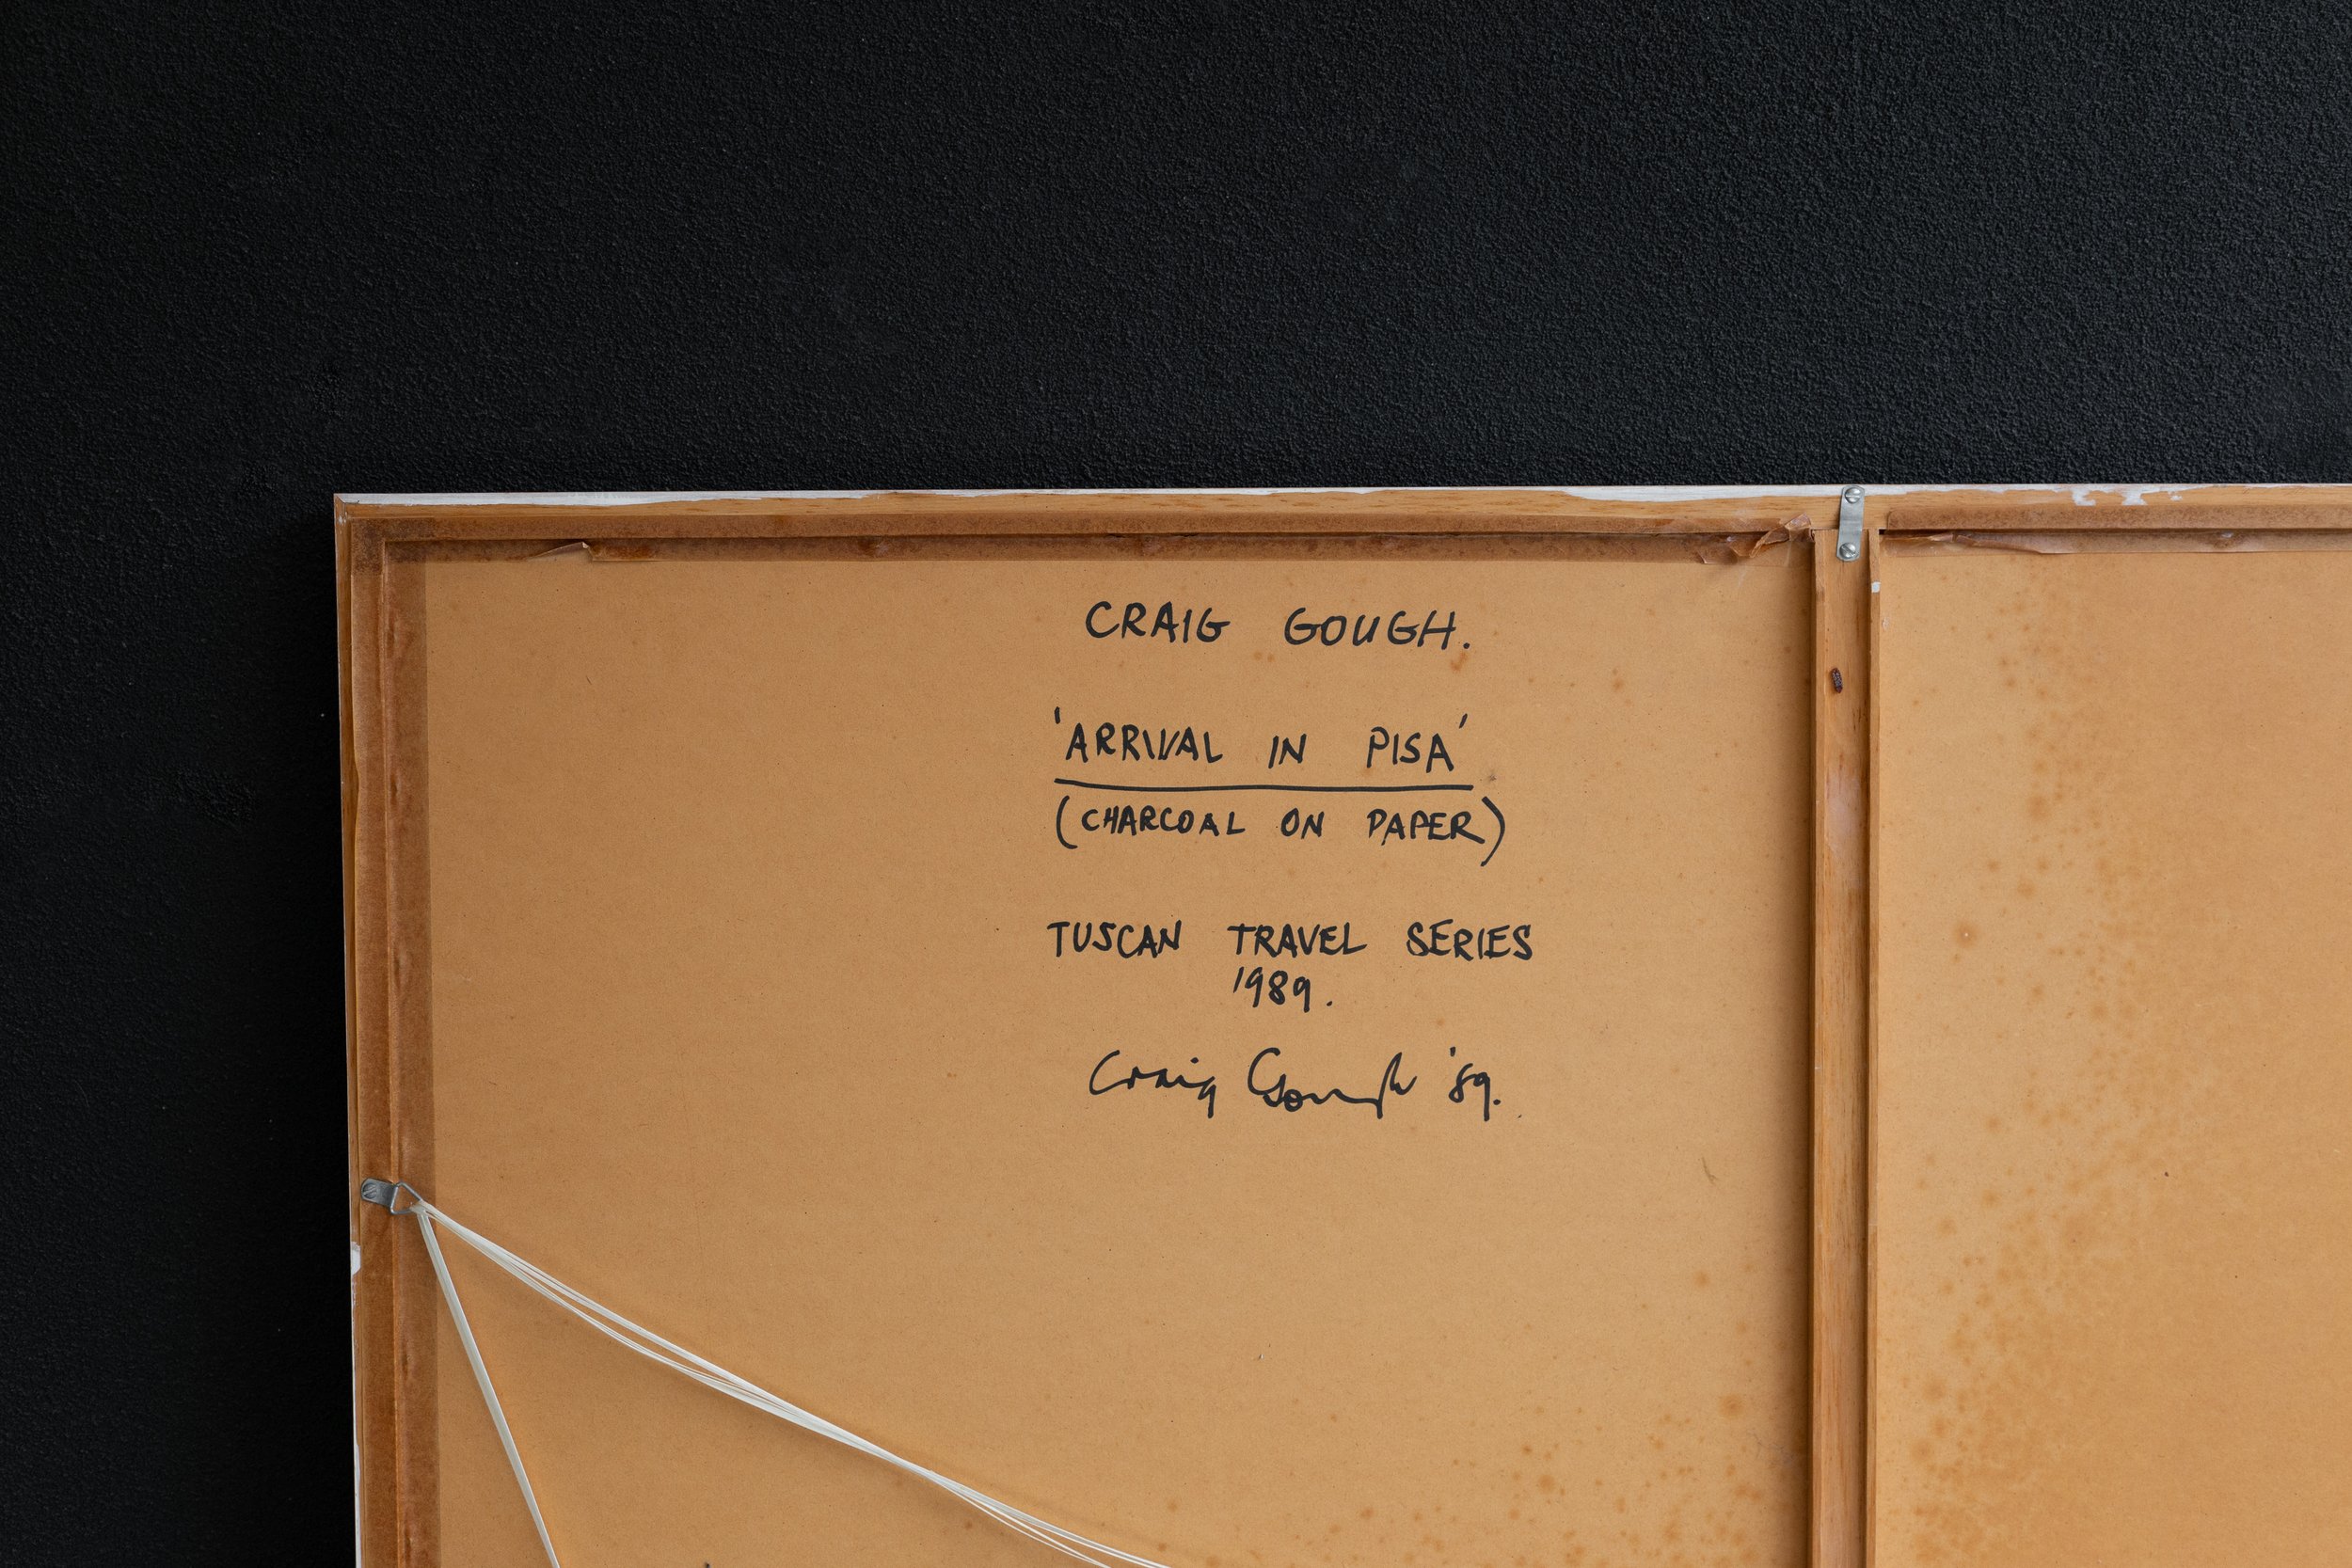 CRAIG GOUGH.
'ARRIVAL IN PISA'
(CHARCOAL ON PAPER)
TUSCAN TRAVEL SERIES
1989.
Craig Gough '89.